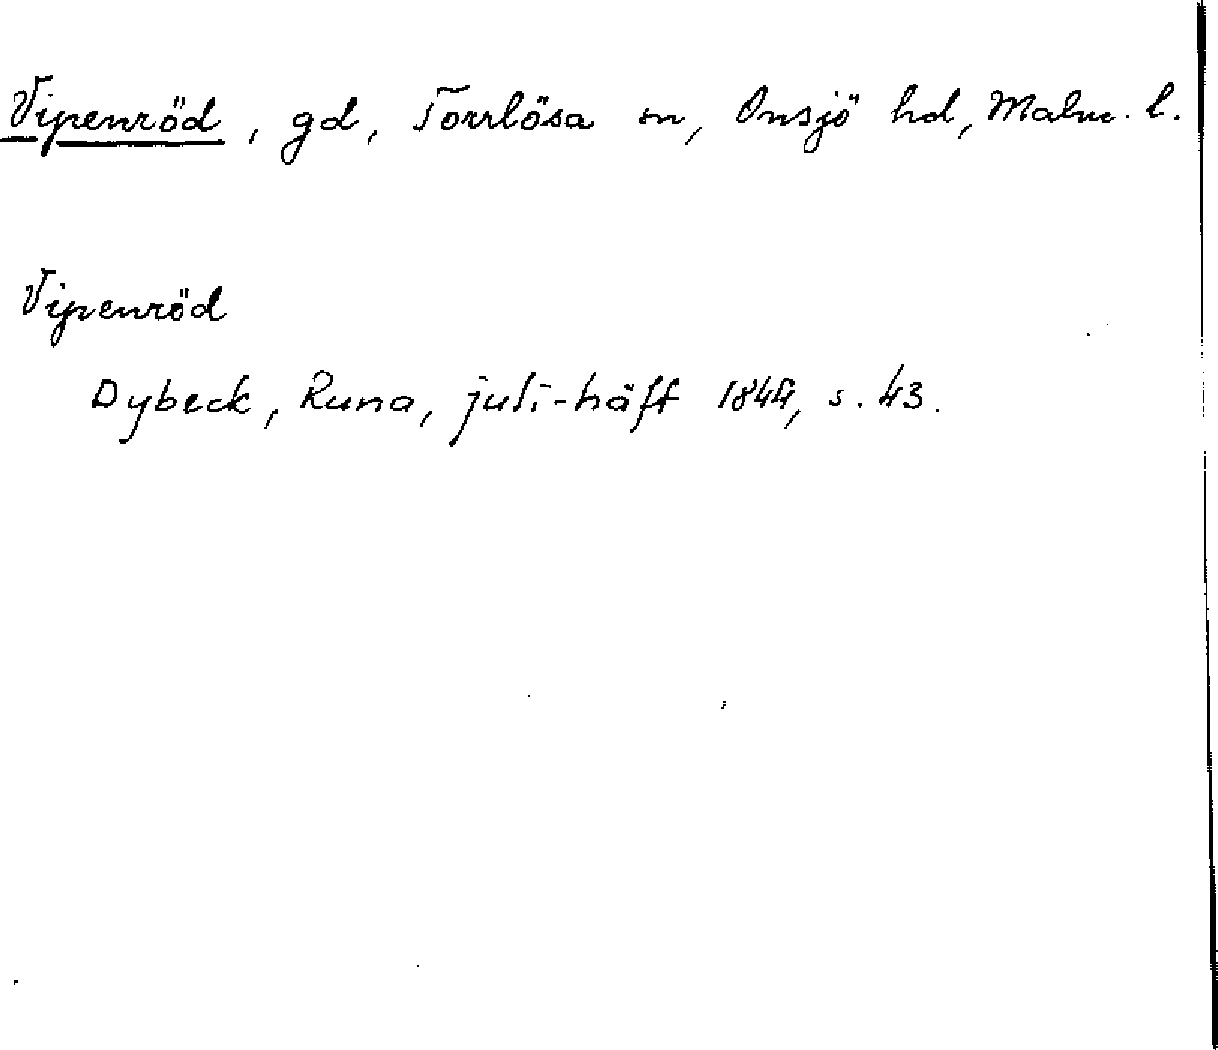 Vipenröd, gd, Torrlösa sn, Onsjö hd, Malm. l.
Vipenröd
Dybeck, Runa, juli-häft 1844, s. 43.